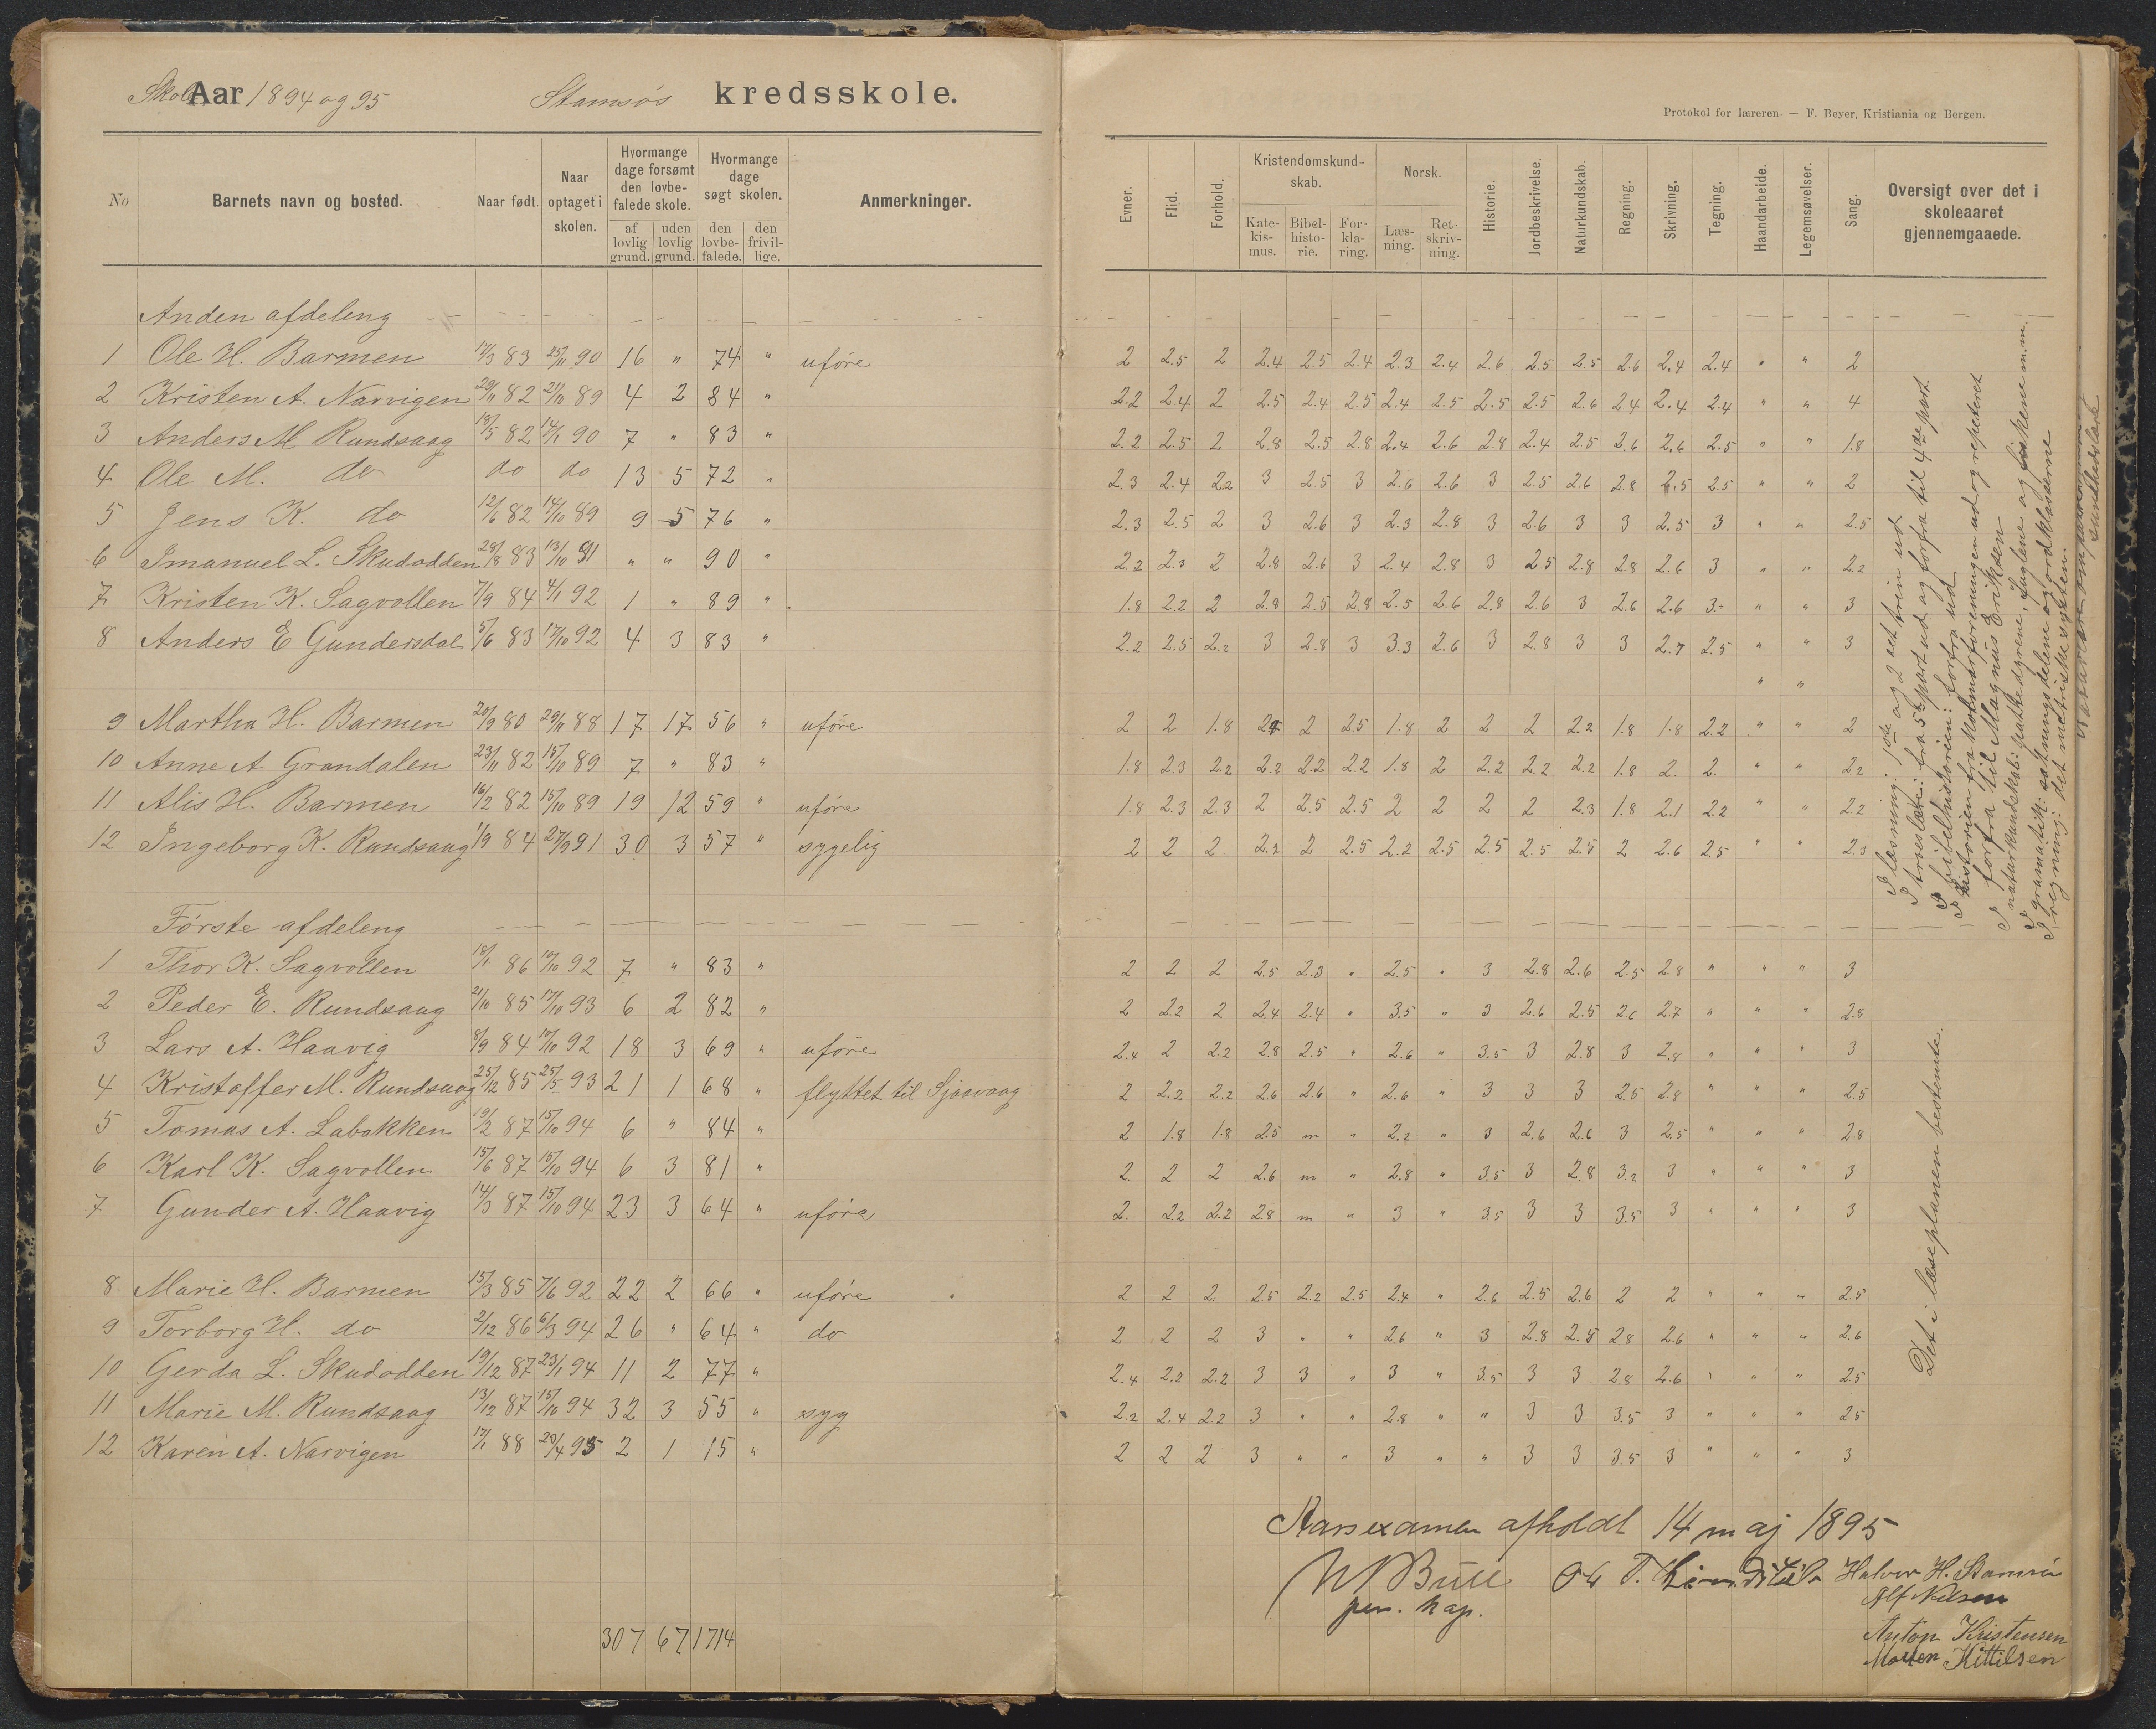 Skole Aar 1894 og 95 Stamsøs kredsskole.
Protokol for læreren. — F. Beyer, Kristiania og Bergen.
No Barnets navn og bosted. Naar født. Naar optaget i skolen. Hvormange dage forsømt den lovbefalede skole. af lovlig grund. uden lovlig grund. Hvormange dage søgt skolen. den lovbefalede. den frivillige. Anmerkninger.
Evner. Flid. Forhold. Kristendomskundskab. Katekismus. Bibelhistorie. Forklaring. Norsk. Læsning. Retskrivning. Historie. Jordbeskrivelse. Naturkundskab. Regning. Skrivning. Tegning. Haandarbeide. Legemsøvelser. Sang. Oversigt over det i skoleaaret gjennemgaaede.
Anden afdeling
1 Ole H. Barmen 17/3 83 25/11 90 16 " 74 " uføre 2 2.5 2 2.4 2.5 2.4 2.3 2.4 2.6 2.5 2.5 2.6 2.4 2.4 " " 2
2 Kristen A. Narvigen 29/11 82 21/10 89 4 2 84 " 2.2 2.4 2 2.5 2.4 2.5 2.4 2.5 2.5 2.5 2.6 2.4 2.4 2.4 " " 4
3 Anders M Rundsaag 18/5 82 14/1 90 7 " 83 " 2.2 2.5 2 2.8 2.5 2.8 2.4 2.6 2.8 2.4 2.5 2.6 2.6 2.5 " " 1.8
4 Ole M. do do do 13 5 72 " 2.3 2.4 2.2 3 2.5 3 2.6 2.6 3 2.5 2.6 2.8 2.5 2.5 " " 2
5 Jens K. do 12/6 82 14/10 89 9 5 76 " 2.3 2.5 2 3 2.6 3 2.3 2.8 3 2.6 3 3 2.5 3 " " 2.5
6 Imanuel L. Skudodden 28/8 83 13/10 91 " " 90 " 2.2 2.3 2 2.8 2.6 3 2.4 2.8 3 2.5 2.8 2.8 2.6 3 " " 2.2
7 Kristen K. Sagvollen 7/9 84 4/1 92 1 " 89 " 1.8 2.2 2 2.8 2.5 2.8 2.5 2.6 2.8 2.6 3 2.6 2.6 3. " " 3
8 Anders E Gundersdal 5/6 83 17/10 92 4 3 83 " 2.2 2.5 2.2 3 2.8 3 3.3 2.6 3 2.8 3 3 2.7 2.5 " " 3
" "
9 Martha H. Barmen 20/9 80 29/11 88 17 17 56 " uføre 2 2 1.8 2 2.5 1.8 2 2 2 2.2 1.8 1.8 2.2 " " 2
10 Anne A Grandalen 23/11 82 15/10 89 7 " 83 " 1.8 2.3 2.2 2.2 2.2 2.2 1.8 2 2.2 2.2 2.2 1.8 2. 2. " " 2.2
11 Alis H. Barmen 16/2 82 15/10 89 19 12 59 " uføre 1.8 2.3 2.3 2 2.5 2.5 2 2 2 2 2.3 1.8 2.1 2.2 " " 2.2
12 Ingeborg K. Rundsaag 1/9 84 27/9 91 30 3 57 " sygelig 2 2 2 2.2 2 2.5 2.2 2.5 2.5 2.5 2.5 2 2.6 2.5 " " 2.3
I læsning: 1ste og 2det trin ud
I troeslære: fra 5te part ud og forfra til 4de part
I bibelhistorien: forfra ud
I historien fra Kalmarforeningen ud og repeteret
forfra til Magnus Eriksøn
I naturkundskab: pattedyrene, fuglene og fiskene m.m.
I gramatik: sætningsdelene og ordklasserne
I regning: det metriske system.
sundhedslære
Første afdeling
1 Thor K. Sagvollen 18/1 86 10/10 92 7 " 83 " 2 2 2 2.5 2.3 " 2.5 " 3 2.8 2.6 2.5 2.8 " " " 3
2 Peder E. Rundsaag 21/10 85 17/10 93 6 2 82 " 2 2.2 2 2.4 2.4 " 3.5 " 3 2.6 2.5 2.6 2.7 " " " 2.8
3 Lars A. Haavig 8/9 84 10/10 92 18 3 69 " uføre 2.4 2 2.2 2.8 2.5 " 2.6 " 3.5 3 2.8 3 2.8 " " " 3
4 Kristoffer M. Rundsaag 25/12 85 25/5 93 21 1 68 " flyttet til Sjaavaag 2 2.2 2.2 2.6 2.6 " 2.6 " 3 3 3 2.5 2.8 " " " 2.5
5 Tomas A. Labakken 19/2 87 15/10 94 6 " 84 " 2 1.8 1.8 2.5 m " 2.2 " 3 2.6 2.6 3 2.5 " " " 2.8
6 Karl K. Sagvollen 15/6 87 15/10 94 6 3 81 " 2. 2 2 2.6 m " 2.8 " 3.5 3 2.8 3.2 3 " " " 3
7 Gunder A. Haavig 14/3 87 15/10 94 23 3 64 " uføre 2. 2.2 2.2 2.8 m " 3 " 3.5 3 3 3.5 3 " " " 3
8 Marie H. Barmen 15/3 85 7/6 92 22 2 66 " uføre 2 2 2 2.5 2.2 2.5 2.4 " 2.6 2.5 2.6 2 2 " " " 2.5
9 Torborg H. do 2/12 86 6/3 94 26 " 64 " do 2 2 2 3 " " 2.6 " 3 2.8 2.8 2.8 2.6 " " " 2.6
10 Gerda L. Skudodden 19/12 87 23/1 94 11 2 77 " 2.4 2.2 2.2 3 3 " 3 " 3.5 3 3 2.8 2.6 " " " 2.5
11 Marie M. Rundsaag 13/12 87 15/10 94 32 3 55 " syg 2.2 2.4 2.2 3 " " 2.8 " " 3 3 3.5 3 " " " 2.5
12 Karen A. Narvigen 17/1 88 23/4 95 2 1 15 " 2 2 2 3 " " 3 " " 3 3 3.5 3 " " " 3
Det i læseplanen bestemte.
307 67 1714
Aarsexamen afholdt 14 maj 1895
Bull
pers. kap.
Halvor H. Stamsø
Alf Nilsen
Anton Kristensen
Morten Kittilsen